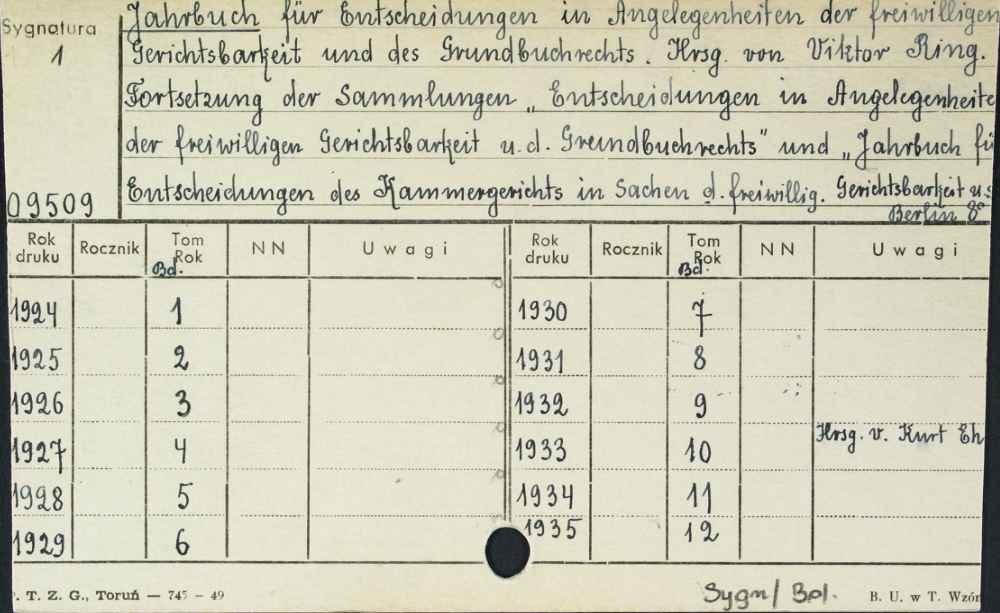 Sygnatura
1
09509
Jahrbuch für Entscheidungen in Angelegenheiten der freiwilligen
Gerichtsbarkeit und des Grundbuchrechts. Hrsg. von Viktor Ring.
Fortsetzung der Sammlungen „Entscheidungen in Angelegenheite
der freiwilligen Gerichtsbarkeit u. d. Grundbuchrechts" und „Jahrbuch fü
Entscheidungen des Kammergerichts in Sachen d. freiwillig. Gerichtsbarkeit u.s
Berlin 8°
Rok druku Rocznik Tom Rok Bd. NN Uwagi Rok druku Rocznik Tom Rok Bd. NN Uwagi
1924 1 1930 7
1925 2 1931 8
1926 3 1932 9
1927 4 1933 10 Hrsg. v. Kurt Eh
1928 5 1934 11
1929 6 1935 12
. T. Z. G., Toruń — 745 – 49
Sygn/Bpl.
B. U. w T. Wzór